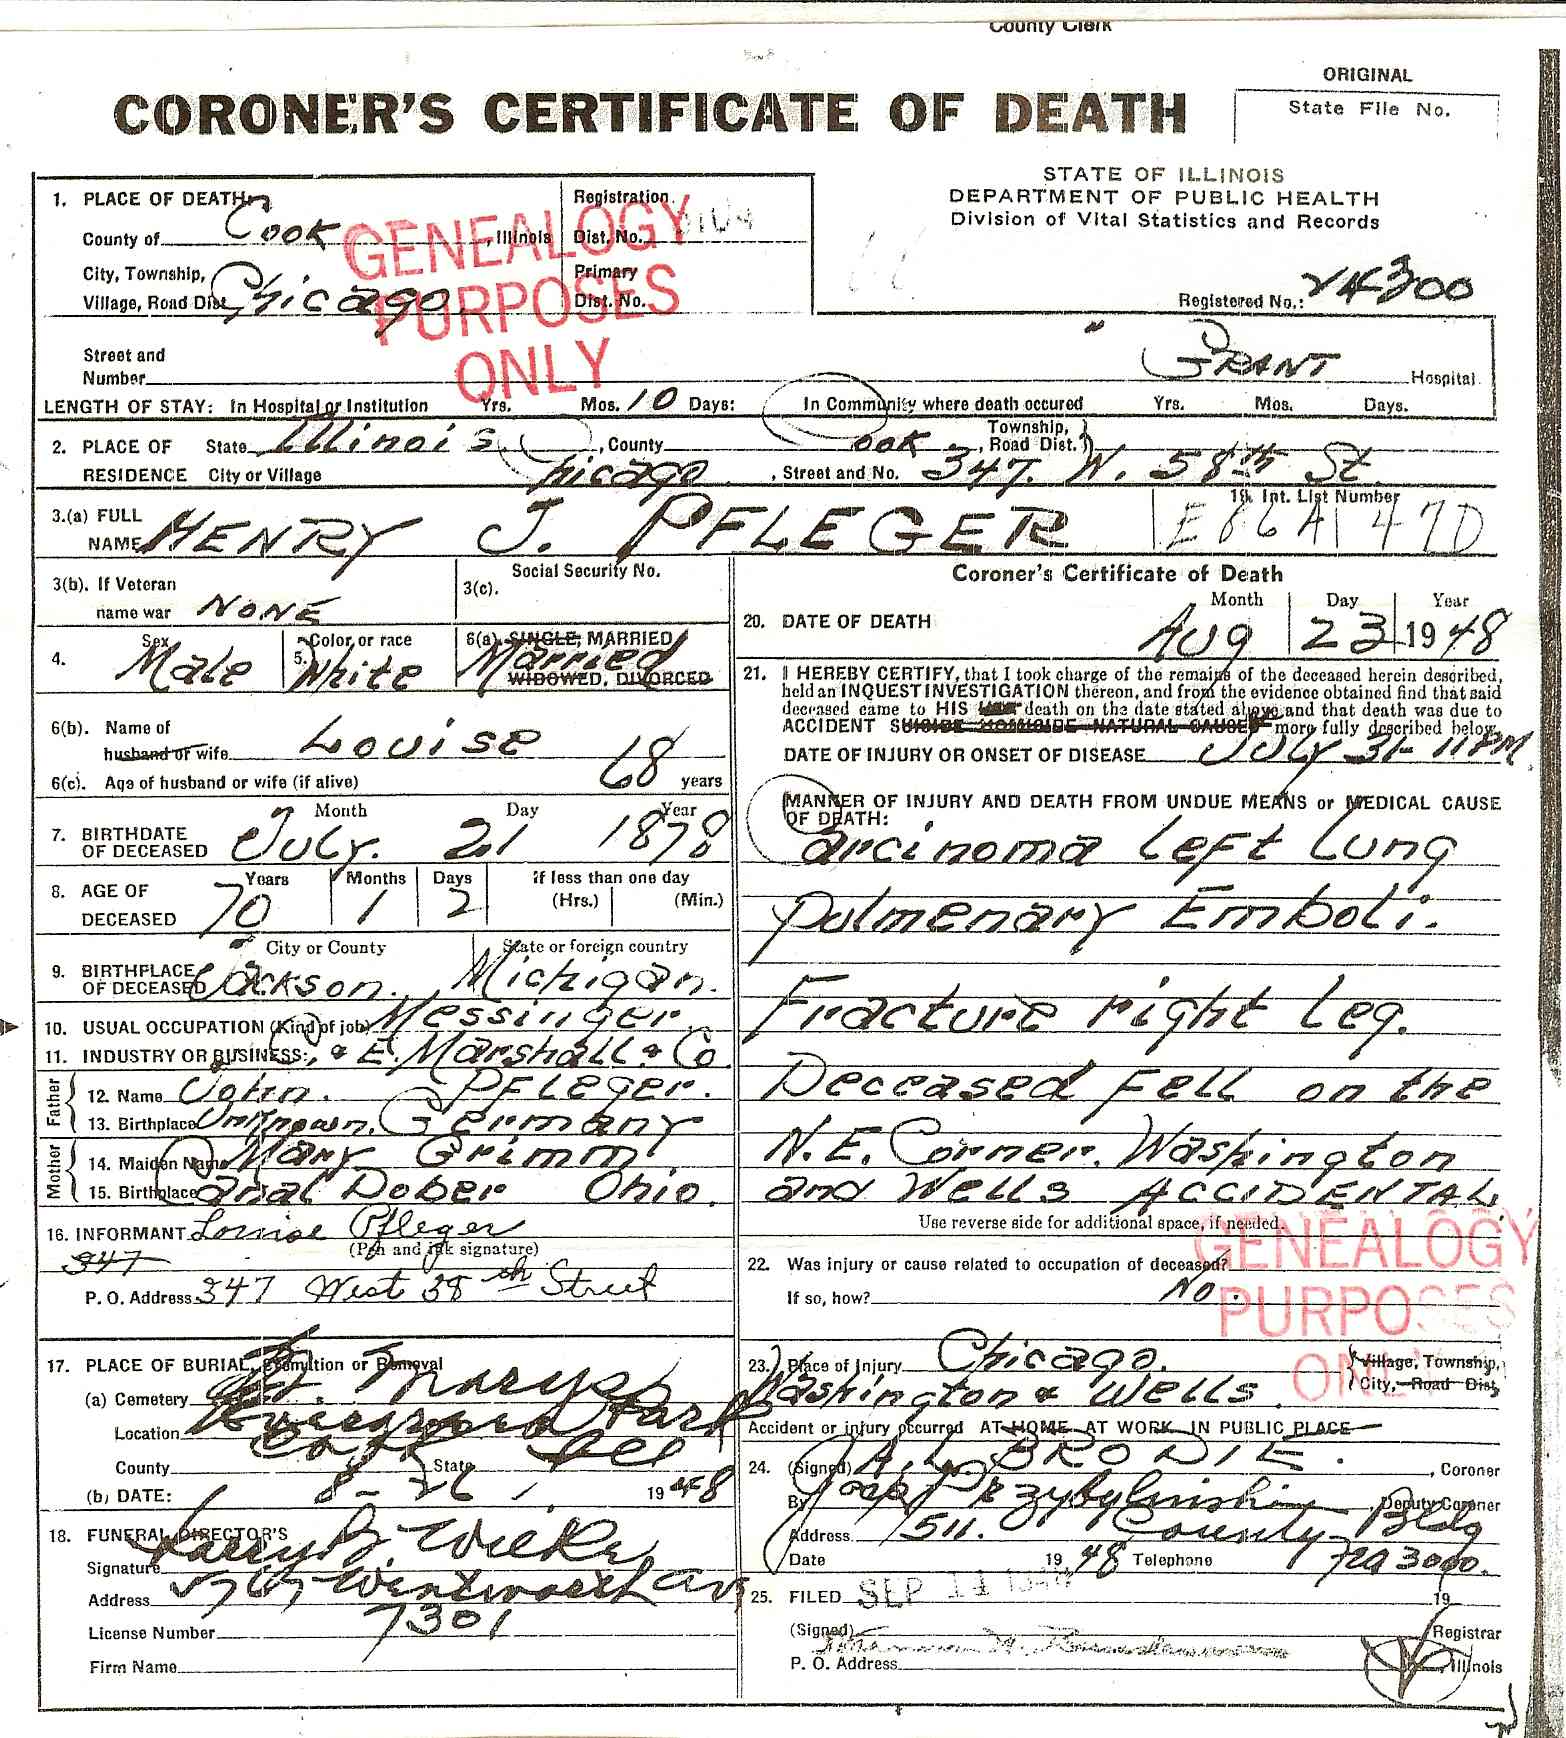 County Clerk
ORIGINAL
State File No.
CORONER'S CERTIFICATE OF DEATH
STATE OF ILLINOIS
DEPARTMENT OF PUBLIC HEALTH
Division of Vital Statistics and Records
Registered No.: 24300
1. PLACE OF DEATH
County of Cook, Illinois
Registration Dist. No.
City, Township, Village, Road Dist. Chicago
Primary Dist. No.
GENEALOGY
PURPOSES
ONLY
Street and Number
GRANT Hospital
LENGTH OF STAY: In Hospital or Institution Yrs. Mos. 10 Days: In Community where death occured Yrs. Mos. Days.
2. PLACE OF RESIDENCE State Illinois, County Cook, Township, Road Dist.
City or Village Chicago, Street and No. 347. W. 58th St.
3.(a) FULL NAME HENRY J. PFLEGER
19. Int. List Number
E 86A 47D
3(b). If Veteran name war NONE
3(c). Social Security No.
4. Sex Male
5. Color or race White
6(a). SINGLE, MARRIED Married WIDOWED, DIVORCED
6(b). Name of husband or wife Louise
6(c). Age of husband or wife (if alive) 68 years
7. BIRTHDATE OF DECEASED Month July. Day 21 Year 1878
8. AGE OF DECEASED Years 70 Months 1 Days 2 If less than one day (Hrs.) (Min.)
9. BIRTHPLACE OF DECEASED City or County Jackson. State or foreign country Michigan.
10. USUAL OCCUPATION (Kind of job) Messinger
11. INDUSTRY OR BUSINESS: C. & E. Marshall & Co.
Father
12. Name John. PFLEGER.
13. Birthplace Unknown. Germany
Mother
14. Maiden Name Mary Grimm
15. Birthplace Canal Dober Ohio.
16. INFORMANT Louise Pfleger
(Pen and ink signature)
347
P. O. Address 347 West 58th Street
17. PLACE OF BURIAL, Cremation or Removal
(a) Cemetery St. Marys
Location Evergreen Park
County Cook State Ill
(b) DATE: 8-26, 1948
18. FUNERAL DIRECTOR'S
Signature
Address Wentworth Av
License Number 7301
Firm Name
Coroner's Certificate of Death
20. DATE OF DEATH Month Aug Day 23 Year 1948
21. I HEREBY CERTIFY, that I took charge of the remains of the deceased herein described,
held an INQUEST INVESTIGATION thereon, and from the evidence obtained find that said
deceased came to HIS death on the date stated above and that death was due to
ACCIDENT SUICIDE HOMICIDE NATURAL CAUSE more fully described below.
DATE OF INJURY OR ONSET OF DISEASE July 31- 11PM
MANNER OF INJURY AND DEATH FROM UNDUE MEANS or MEDICAL CAUSE
OF DEATH:
Carcinoma Left Lung
Pulmenary Emboli.
Fracture right Leg.
Deceased Fell on the
N.E. Corner. Washington
and Wells ACCIDENTAL.
Use reverse side for additional space, if needed.
GENEALOGY
PURPOSES
ONLY
22. Was injury or cause related to occupation of deceased?
If so, how? No.
23. Place of Injury Chicago. Village, Township, City, Road Dist.
Washington & Wells.
Accident or injury occurred AT HOME AT WORK IN PUBLIC PLACE
24. (Signed) A. L. BRODIE., Coroner
By, Deputy Coroner
Address 511. County Bldg
Date 1948 Telephone FRA 3000.
25. FILED SEP 11 1948 19
(Signed) Registrar
P. O. Address, Illinois